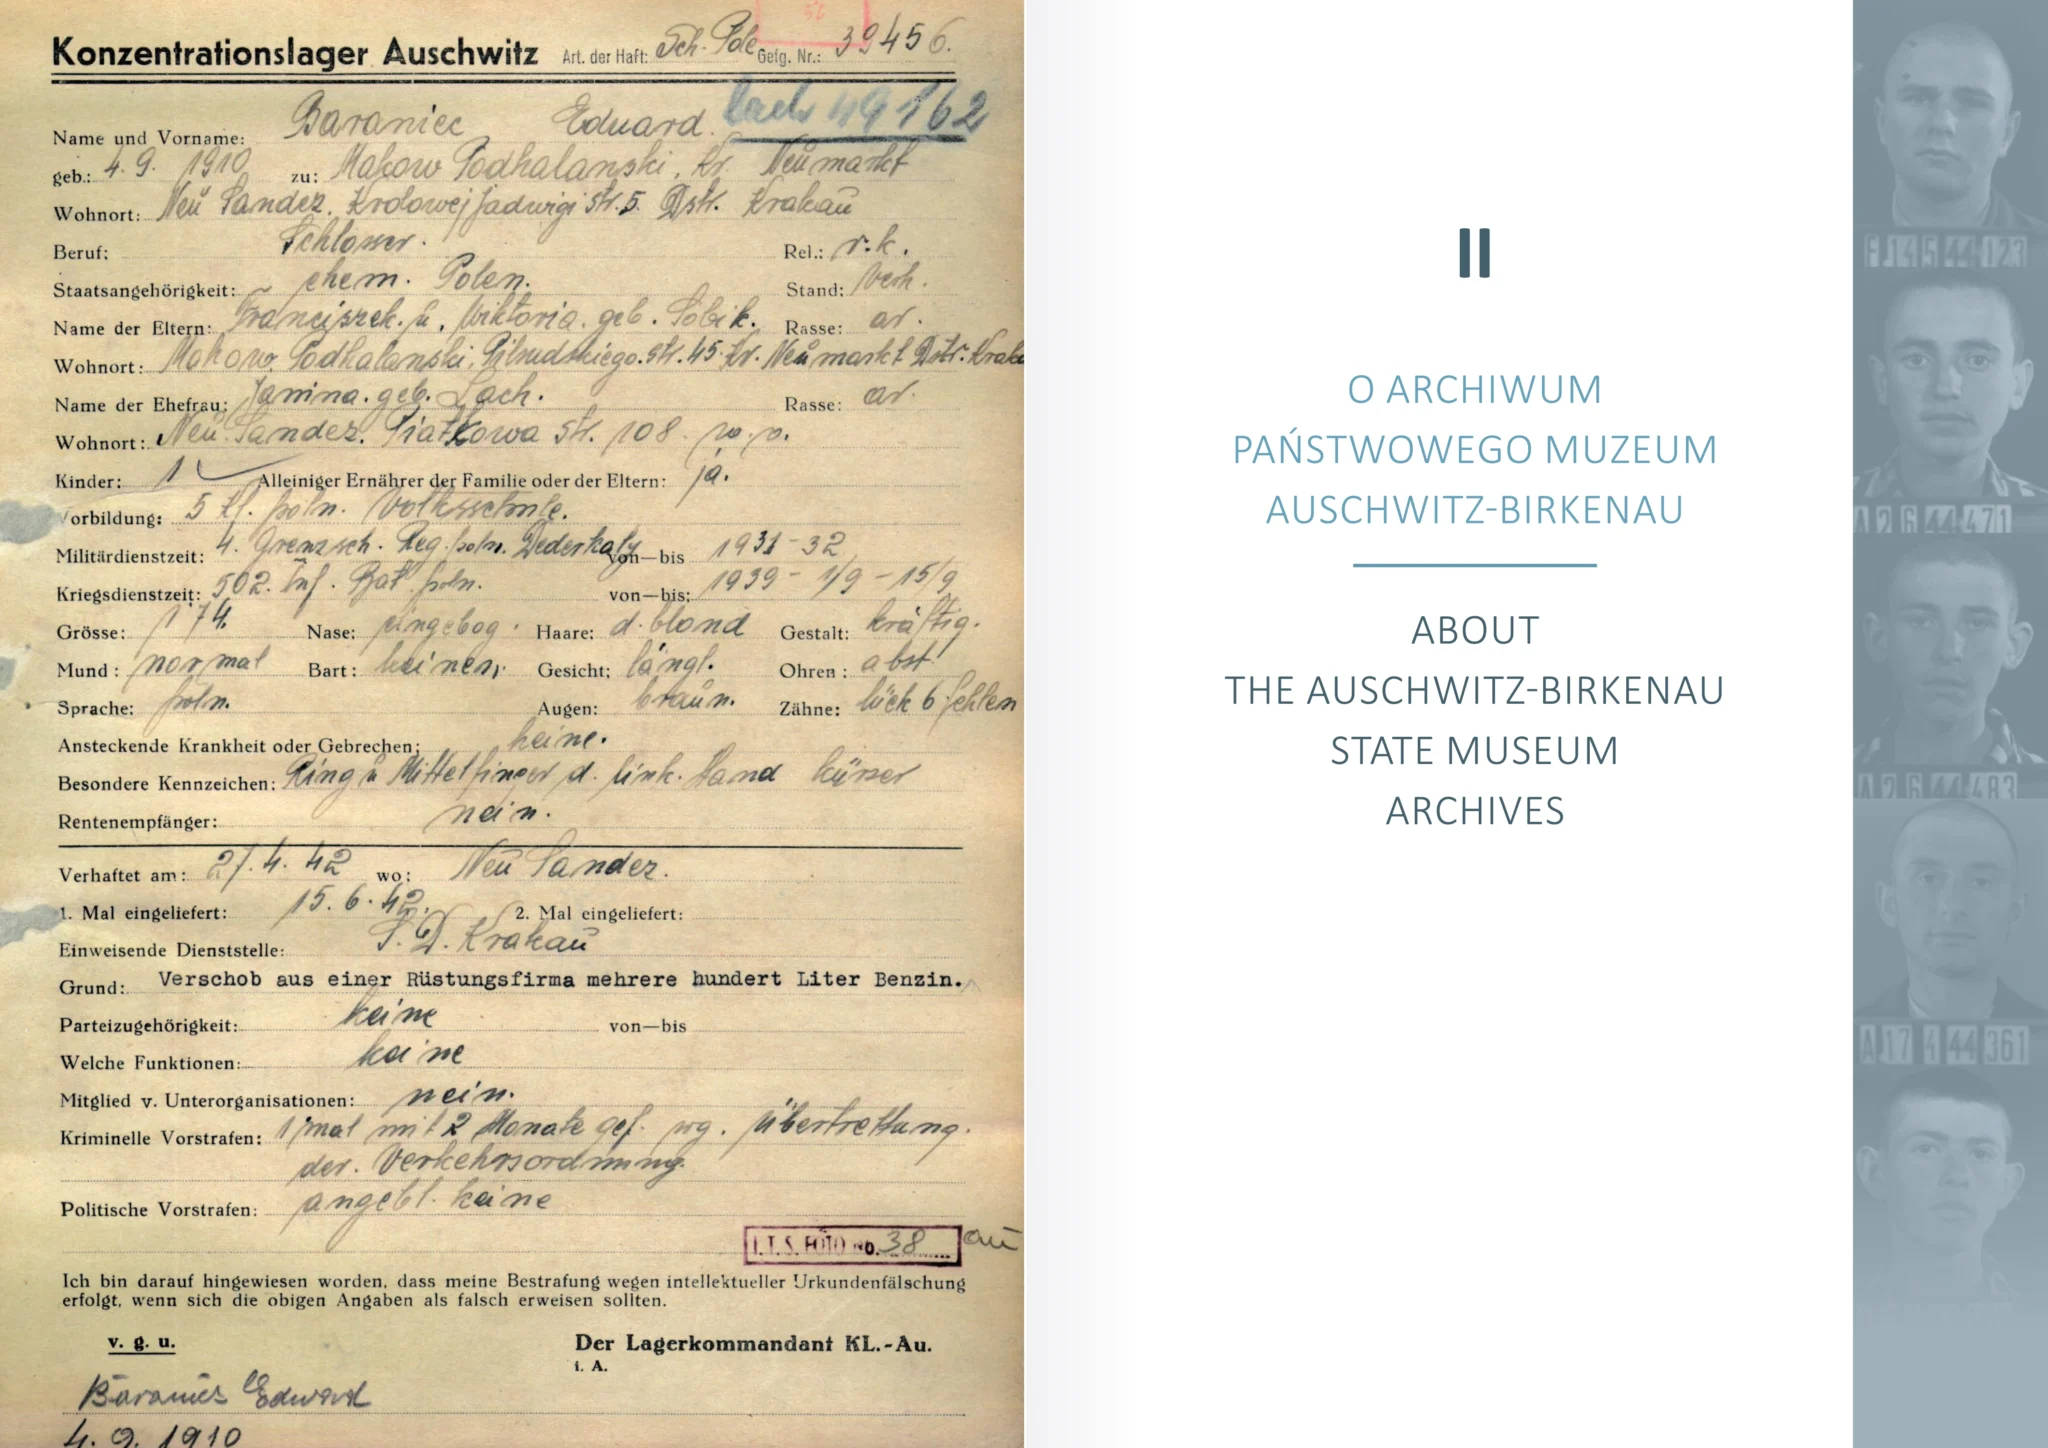 Konzentrationslager Auschwitz Art. der Haft: Sch. Pole Gefg. Nr.: 39456.
Name und Vorname: Baraniec Eduard. 49162
geb.: 4.9. 1910 zu: Makow Podhalanski, Kr. Neumarkt
Wohnort: Neu Sandez. Krolowej Jadwigi str. 5. Dstr. Krakau
Beruf: Schlosser. Rel.: r.k.
Staatsangehörigkeit: ehem. Polen. Stand: Verh.
Name der Eltern: Franciszek. u. Wiktoria. geb. Sobik. Rasse: ar.
Wohnort: Makow. Podhalanski. Pilsudskiego. str. 45. Kr. Neumarkt Dstr. Kraka
Name der Ehefrau: Janina. geb. Lach. Rasse: ar.
Wohnort: Neu. Sandez. Piatkowa str. 108.
Kinder: 1 Alleiniger Ernährer der Familie oder der Eltern: ja.
Vorbildung: 5 Kl. poln. Volksschule.
Militärdienstzeit: 4. Grenzsch. Reg. poln. Dederkaly von—bis 1931-32
Kriegsdienstzeit: 502. Inf. Bat. poln. von—bis: 1939 - 1/9 - 15/9
Grösse: 174. Nase: eingebog. Haare: d. blond Gestalt: kräftig.
Mund: normal Bart: keinen, Gesicht: längl. Ohren: abst.
Sprache: poln. Augen: braun. Zähne: lück 6 fehlen
Ansteckende Krankheit oder Gebrechen: keine.
Besondere Kennzeichen: Ring u Mittelfinger d. link. Hand kürzer
Rentenempfänger: nein.
Verhaftet am: 27.4.42 wo: Neu Sandez.
1. Mal eingeliefert: 15.6.42. 2. Mal eingeliefert:
Einweisende Dienststelle: S.D. Krakau
Grund: Verschob aus einer Rüstungsfirma mehrere hundert Liter Benzin.
Parteizugehörigkeit: keine von—bis
Welche Funktionen: keine
Mitglied v. Unterorganisationen: nein.
Kriminelle Vorstrafen: 1 mal mit 2 Monate gef. wg. übertrettung.
der. Verkehrsordnung.
Politische Vorstrafen: angebl. keine
I.T.S. FOTO No. 38 au
Ich bin darauf hingewiesen worden, dass meine Bestrafung wegen intellektueller Urkundenfälschung
erfolgt, wenn sich die obigen Angaben als falsch erweisen sollten.
v. g. u. Der Lagerkommandant KL.-Au.
i. A.
Baraniec Edward
4.9.1910
II
O ARCHIWUM
PAŃSTWOWEGO MUZEUM
AUSCHWITZ-BIRKENAU
ABOUT
THE AUSCHWITZ-BIRKENAU
STATE MUSEUM
ARCHIVES
5 44 123
A 2 6 44 471
A 2 6 44 483
A 17 4 44 361